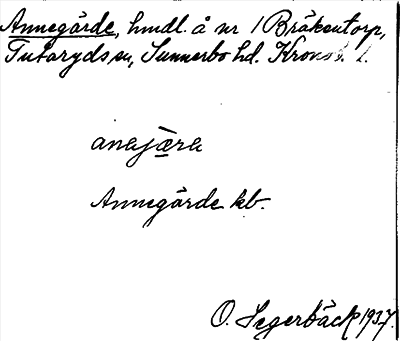 Annegärde, hmdl. å nr 1 Bråkentorp,
Tutaryds sn, Sunnerbo hd. Kronob. l.
anajæra
Annegärde kb.
O. Segerbäck 1937.